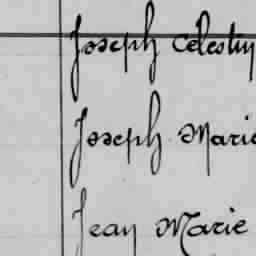 Joseph Celestin
Joseph Marie
Jean Marie